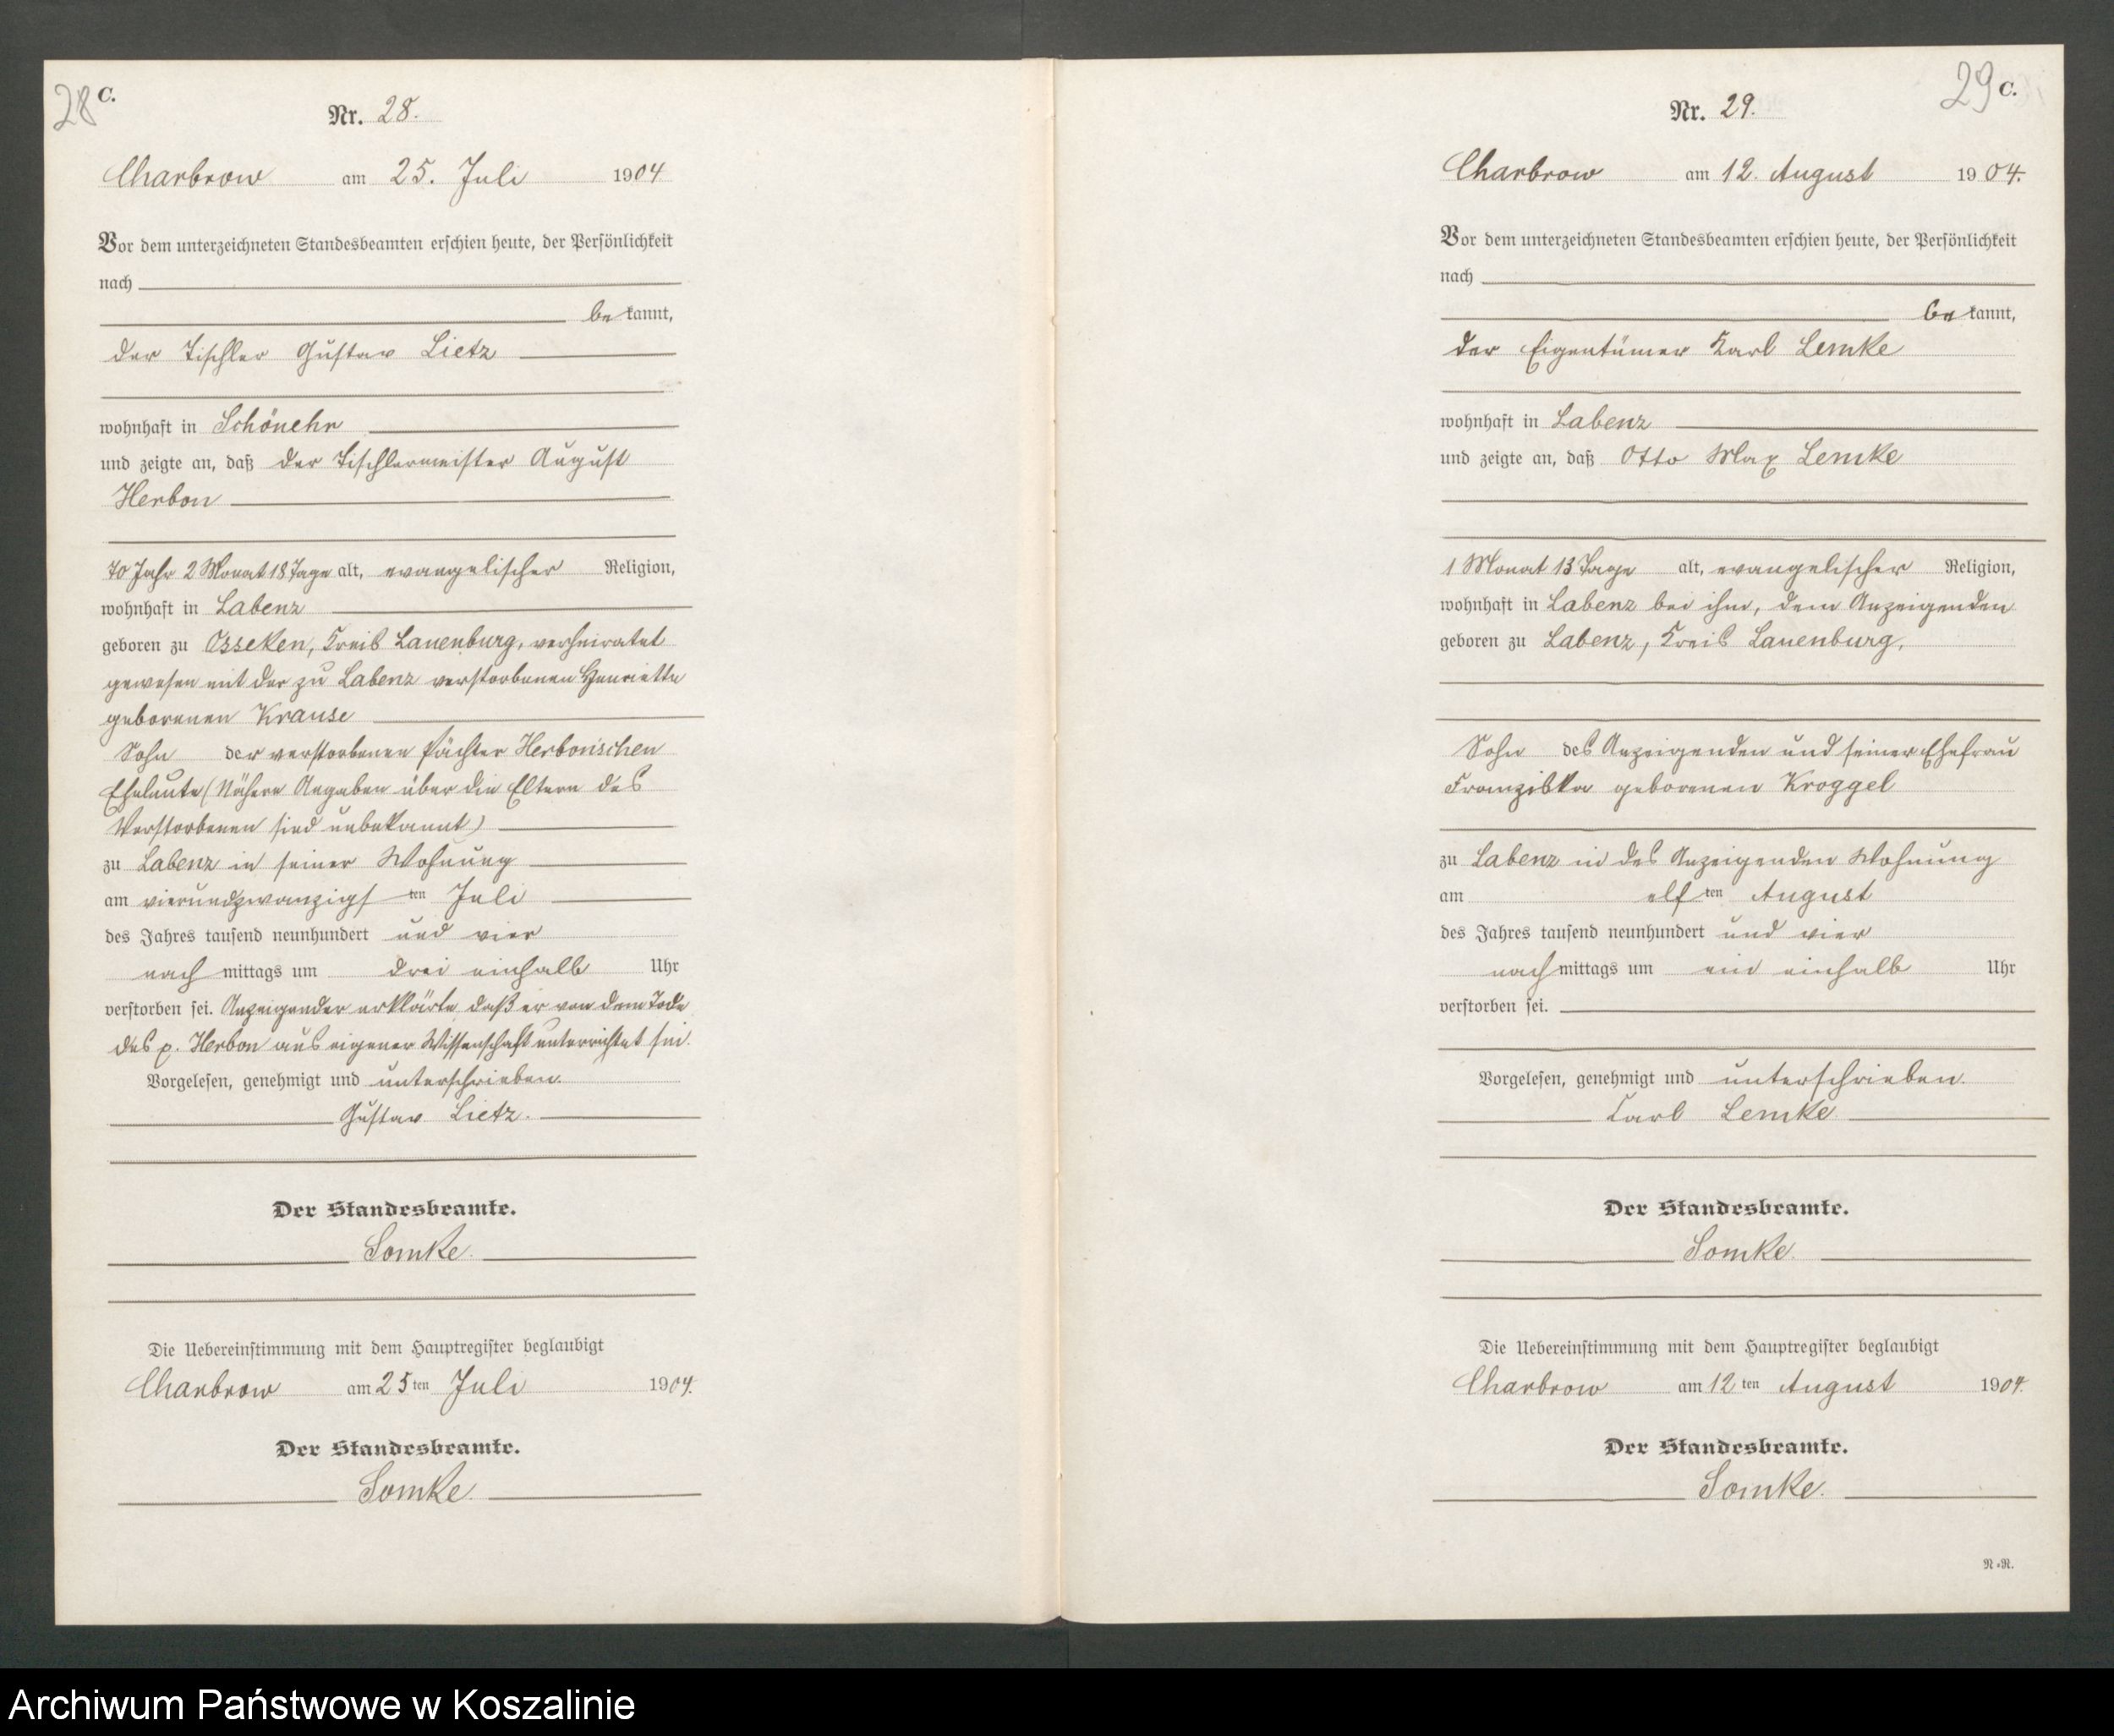 28
C.
Nr. 28.
Charbrow am 25. Juli 1904
Vor dem unterzeichneten Standesbeamten erschien heute, der Persönlichkeit
nach
bekannt,
der Tischler Gustav Lietz
wohnhaft in Schönehr
und zeigte an, daß der Tischlermeister August
Herbon
70 Jahr 2 Monat 18 Tage alt, evangelischer Religion,
wohnhaft in Labenz
geboren zu Osseken, Kreis Lauenburg, verheiratet
gewesen mit der zu Labenz verstorbenen Henriette
geborenen Krause
Sohn der verstorbenen Pächter Herbonschen
Eheleute (Nähere Angaben über die Eltern des
Verstorbenen sind unbekannt)
zu Labenz in seiner Wohnung
am vierundzwanzigsten Juli
des Jahres tausend neunhundert und vier
nachmittags um drei einhalb Uhr
verstorben sei. Anzeigender erklärte, daß er von dem Tode
des p. Herbon aus eigener Wissenschaft unterrichtet sei.
Vorgelesen, genehmigt und unterschrieben.
Gustav Lietz.
Der Standesbeamte.
Somke.
Die Uebereinstimmung mit dem Hauptregister beglaubigt
Charbrow am 25ten Juli 1904.
Der Standesbeamte.
Somke.
29
C.
Nr. 29.
Charbrow am 12. August 1904.
Vor dem unterzeichneten Standesbeamten erschien heute, der Persönlichkeit
nach
bekannt,
der Eigentümer Karl Lemke
wohnhaft in Labenz
und zeigte an, daß Otto Max Lemke
1 Monat 13 Tage alt, evangelischer Religion,
wohnhaft in Labenz bei ihm, dem Anzeigenden
geboren zu Labenz, Kreis Lauenburg,
Sohn des Anzeigenden und seiner Ehefrau
Franziska geborenen Kroggel
zu Labenz in des Anzeigenden Wohnung
am elften August
des Jahres tausend neunhundert und vier
nachmittags um ein einhalb Uhr
verstorben sei.
Vorgelesen, genehmigt und unterschrieben.
Karl Lemke
Der Standesbeamte.
Somke.
Die Uebereinstimmung mit dem Hauptregister beglaubigt
Charbrow am 12ten August 1904.
Der Standesbeamte.
Somke.
N.=N.
Archiwum Państwowe w Koszalinie